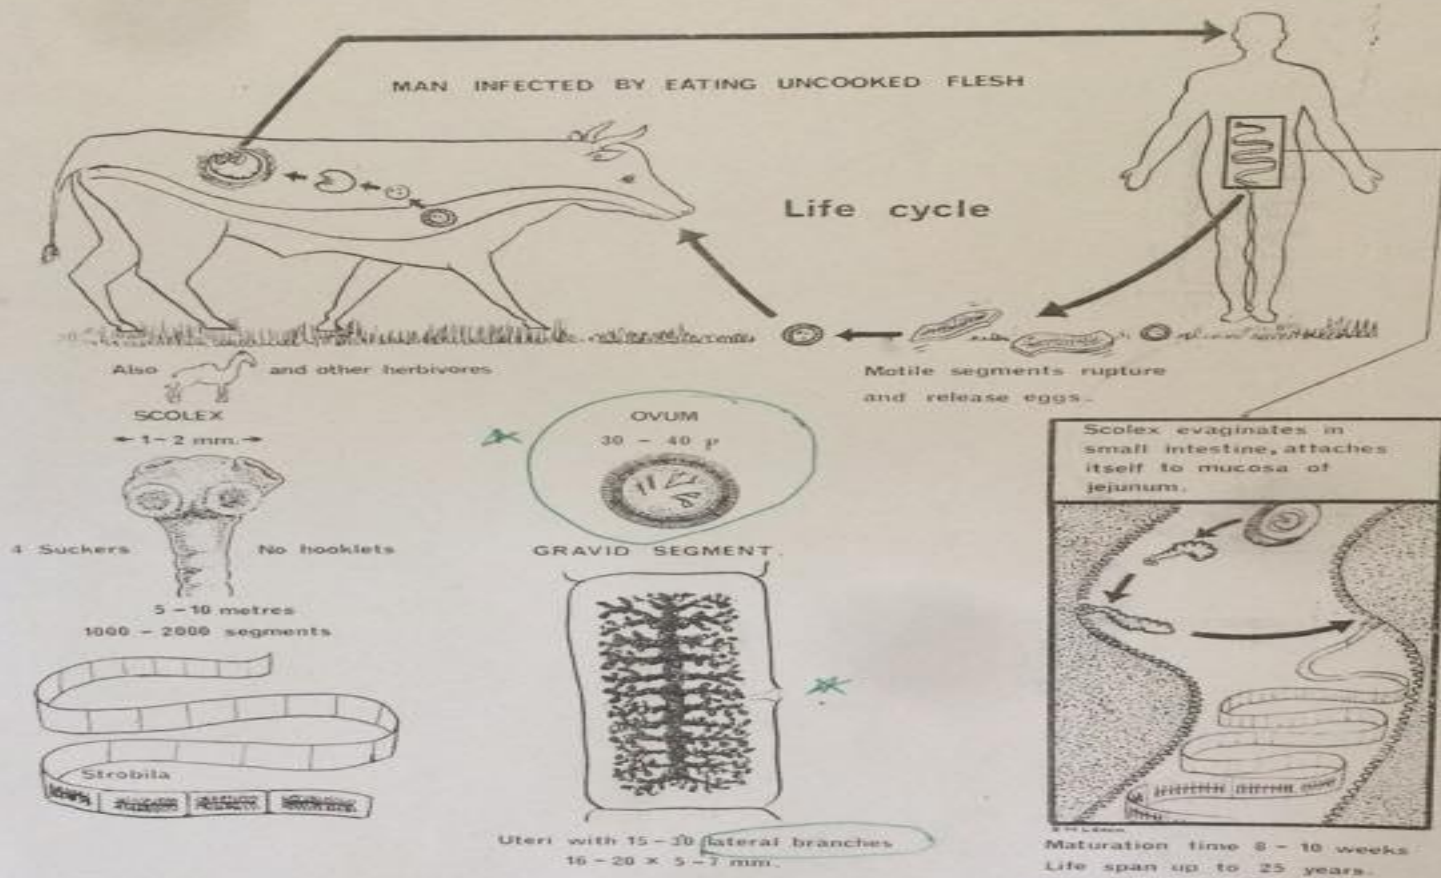 MAN INFECTED BY EATING UNCOOKED FLESH
Life cycle
Also and other herbivores
Motile segments rupture
and release eggs.
SCOLEX
1-2 mm.
4 Suckers No hooklets
5-10 metres
1000 - 2000 segments
Strobila
OVUM
30 - 40 µ
GRAVID SEGMENT.
Uteri with 15-30 lateral branches
16-20 x 5-7 mm.
Scolex evaginates in
small intestine, attaches
itself to mucosa of
jejunum.
Maturation time 8 - 10 weeks
Life span up to 25 years.